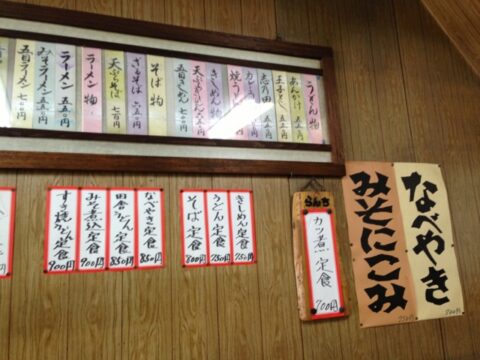 うどん物
あんかけ 五五〇円
玉子とじ 五五〇円
志乃田 五五〇円
カレーうどん
焼うどん
きしめん物
天ぷらきしめん
五目きしめん
そば物
ざるそば 六五〇円
天ぷらそば 七五〇円
ラーメン物
ラーメン 五五〇円
みそラーメン 五五〇円
五目ラーメン 七〇〇円
なべやき
みそにこみ
750円
らんち
カツ煮定食
700円
きしめん定食 750円
うどん定食 750円
そば定食 800円
なべやき定食 850円
田舎うどん定食 850円
みそ煮込定食 900円
すき焼うどん定食 900円